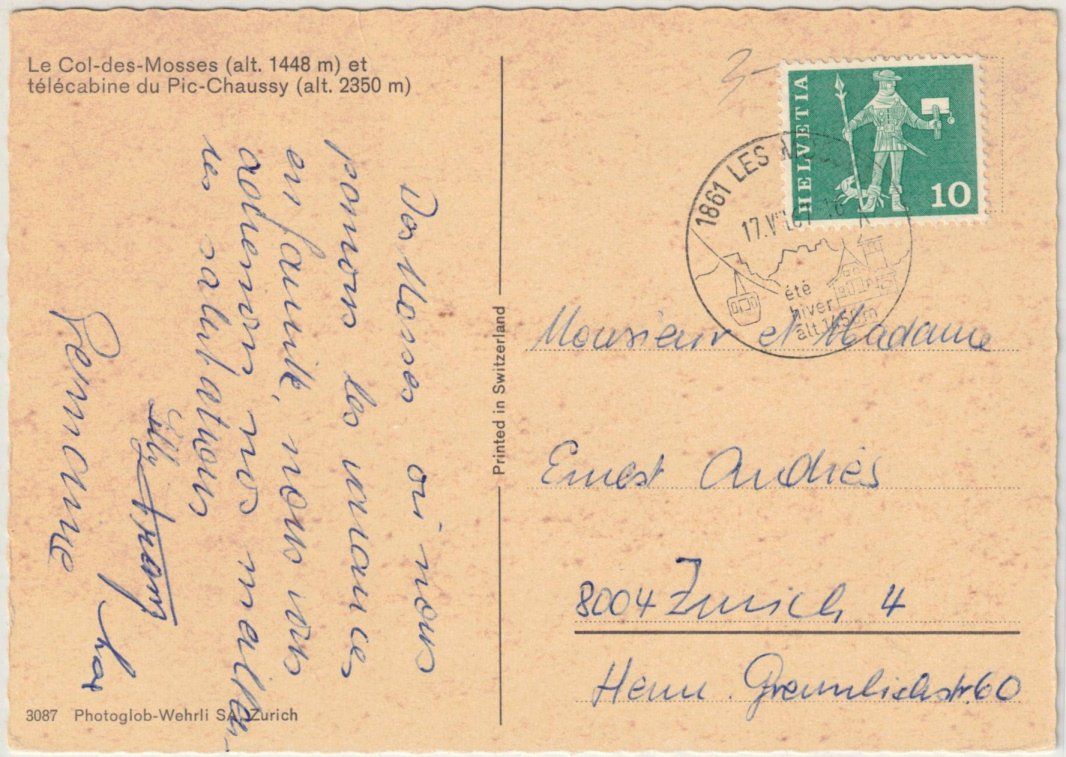 Le Col-des-Mosses (alt. 1448 m) et
télécabine du Pic-Chaussy (alt. 2350 m)
Des Mosses où nous
passons les vacances
en famille, nous vous
adressons nos meilleu-
res salutations
Germaine
Printed in Switzerland
HELVETIA
10
1861 LES
17.V
été
hiver
alt. 1450m
Monsieur et Madame
Ernest Andrès
8004 Zurich 4
Herm. Greumlichstr. 60
3087 Photoglob-Wehrli SA, Zurich